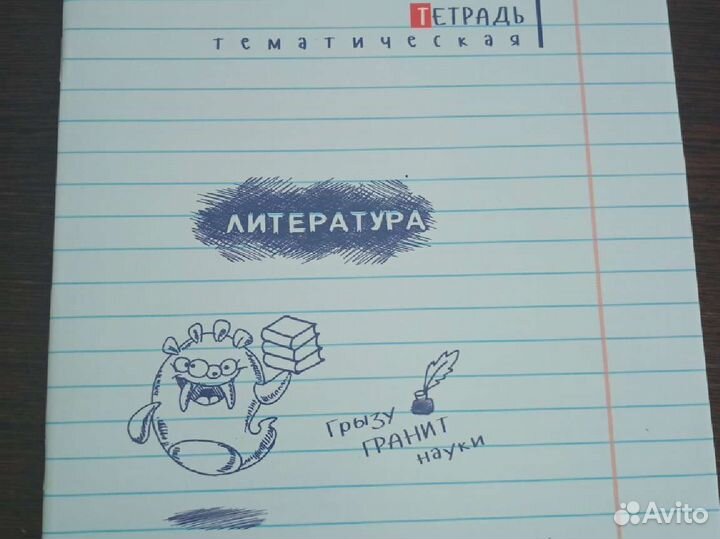 ТЕТРАДЬ
тематическая
ЛИТЕРАТУРА
Грызу
ГРАНИТ
науки
Avito